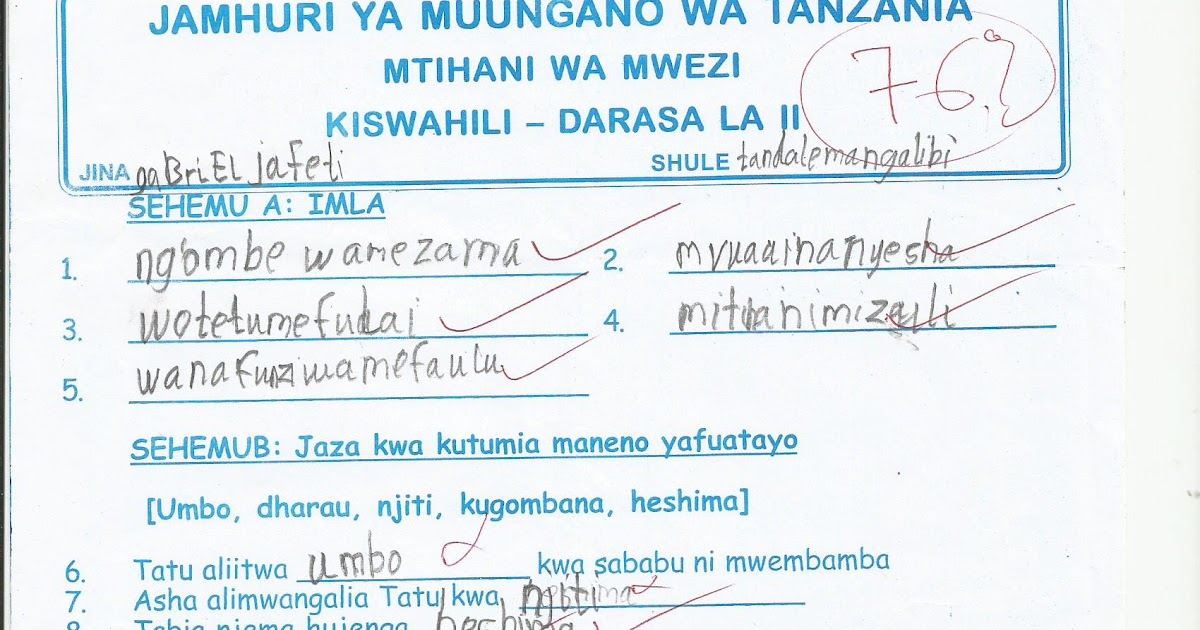 JAMHURI YA MUUNGANO WA TANZANIA
MTIHANI WA MWEZI
76
KISWAHILI – DARASA LA II
JINA gaBriEL jafeti SHULE tandalemangalibi
SEHEMU A: IMLA
1. ng'ombe wamezama 2. mvuaainanyesha
3. wotetumefudai 4. mituanimizuli
5. wanafunziwamefaulu
SEHEMUB: Jaza kwa kutumia maneno yafuatayo
[Umbo, dharau, njiti, kugombana, heshima]
6. Tatu aliitwa umbo kwa sababu ni mwembamba
7. Asha alimwangalia Tatu kwa
8. Tabia njema hujenga heshima